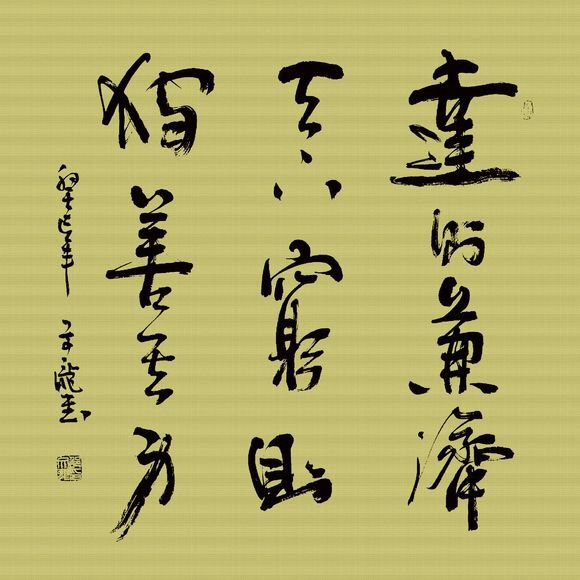 達則兼濟
天下窮則
獨善其身
癸巳年